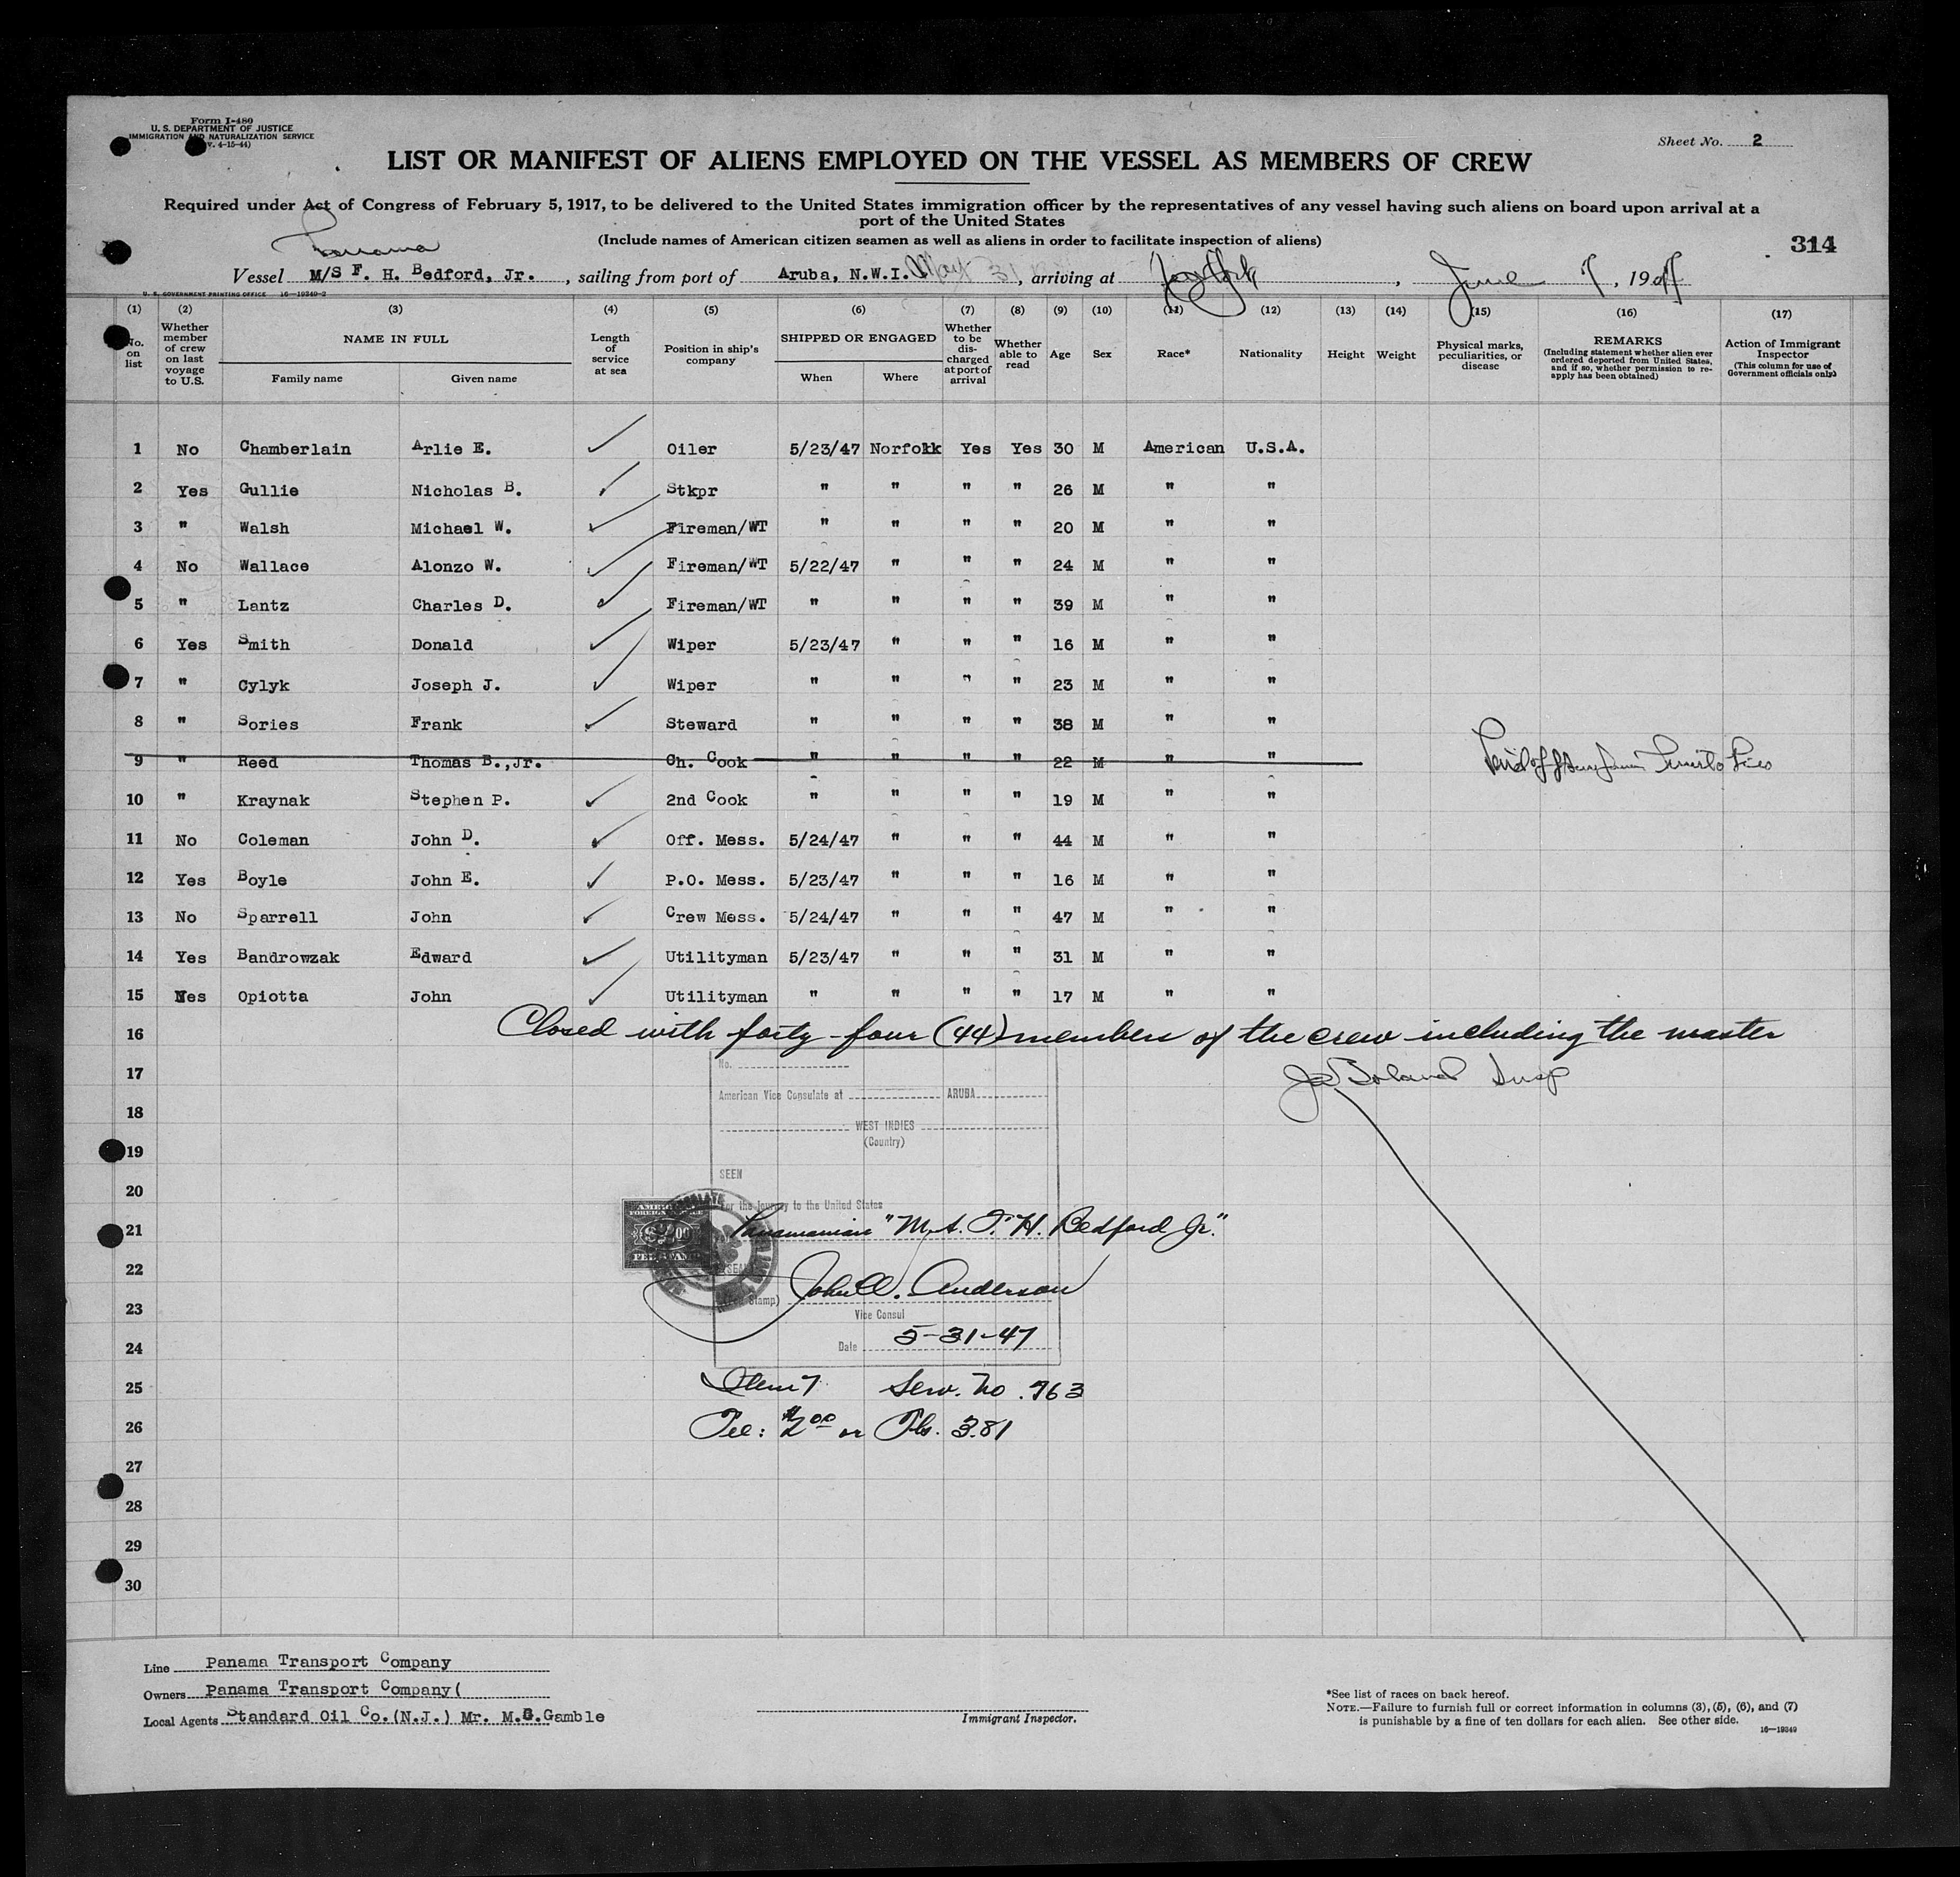 Form I-480
U. S. DEPARTMENT OF JUSTICE
IMMIGRATION AND NATURALIZATION SERVICE
v. 4-15-44)
Sheet No. 2
LIST OR MANIFEST OF ALIENS EMPLOYED ON THE VESSEL AS MEMBERS OF CREW
Required under Act of Congress of February 5, 1917, to be delivered to the United States immigration officer by the representatives of any vessel having such aliens on board upon arrival at a
port of the United States
(Include names of American citizen seamen as well as aliens in order to facilitate inspection of aliens)
314
Panama
Vessel M/S F. H. Bedford, Jr. , sailing from port of Aruba, N.W.I. May 31 , arriving at , June 7, 1947
U. S. GOVERNMENT PRINTING OFFICE 16-19349-2
(1) (2) (3) (4) (5) (6) (7) (8) (9) (10) (11) (12) (13) (14) (15) (16) (17)
No. on list
Whether member of crew on last voyage to U.S.
NAME IN FULL
Family name
Given name
Length of service at sea
Position in ship's company
SHIPPED OR ENGAGED
When
Where
Whether to be discharged at port of arrival
Whether able to read
Age
Sex
Race*
Nationality
Height
Weight
Physical marks, peculiarities, or disease
REMARKS
(Including statement whether alien ever ordered deported from United States, and if so, whether permission to reapply has been obtained)
Action of Immigrant Inspector
(This column for use of Government officials only)
1 No Chamberlain Arlie E. Oiler 5/23/47 Norfolk Yes Yes 30 M American U.S.A.
2 Yes Gullie Nicholas B. Stkpr " " " " 26 M " "
3 " Walsh Michael W. Fireman/WT " " " " 20 M " "
4 No Wallace Alonzo W. Fireman/WT 5/22/47 " " " 24 M " "
5 " Lantz Charles D. Fireman/WT " " " " 39 M " "
6 Yes Smith Donald Wiper 5/23/47 " " " 16 M " "
7 " Cylyk Joseph J. Wiper " " " " 23 M " "
8 " Sories Frank Steward " " " " 38 M " "
9 " Reed Thomas B.,Jr. Ch. Cook " " " " 22 M " "
10 " Kraynak Stephen P. 2nd Cook " " " " 19 M " "
11 No Coleman John D. Off. Mess. 5/24/47 " " " 44 M " "
12 Yes Boyle John E. P.O. Mess. 5/23/47 " " " 16 M " "
13 No Sparrell John Crew Mess. 5/24/47 " " " 47 M " "
14 Yes Bandrowzak Edward Utilityman 5/23/47 " " " 31 M " "
15 Yes Opiotta John Utilityman " " " " 17 M " "
16 Closed with forty-four (44) members of the crew including the master
17
18
19
20
21
22
23
24
25
26
27
28
29
30
No.
American Vice Consulate at ARUBA
WEST INDIES
(Country)
SEEN
For the journey to the United States
Panamanian "M.S. F. H. Bedford Jr."
John A. Anderson
Vice Consul
Date 5-31-47
Item 7 Serv. No. 763
Fee: $2.00 or Fls. 3.81
Line Panama Transport Company
Owners Panama Transport Company(
Local Agents Standard Oil Co.(N.J.) Mr. M.G.Gamble
Immigrant Inspector.
*See list of races on back hereof.
NOTE.—Failure to furnish full or correct information in columns (3), (5), (6), and (7)
is punishable by a fine of ten dollars for each alien. See other side.
16—19349